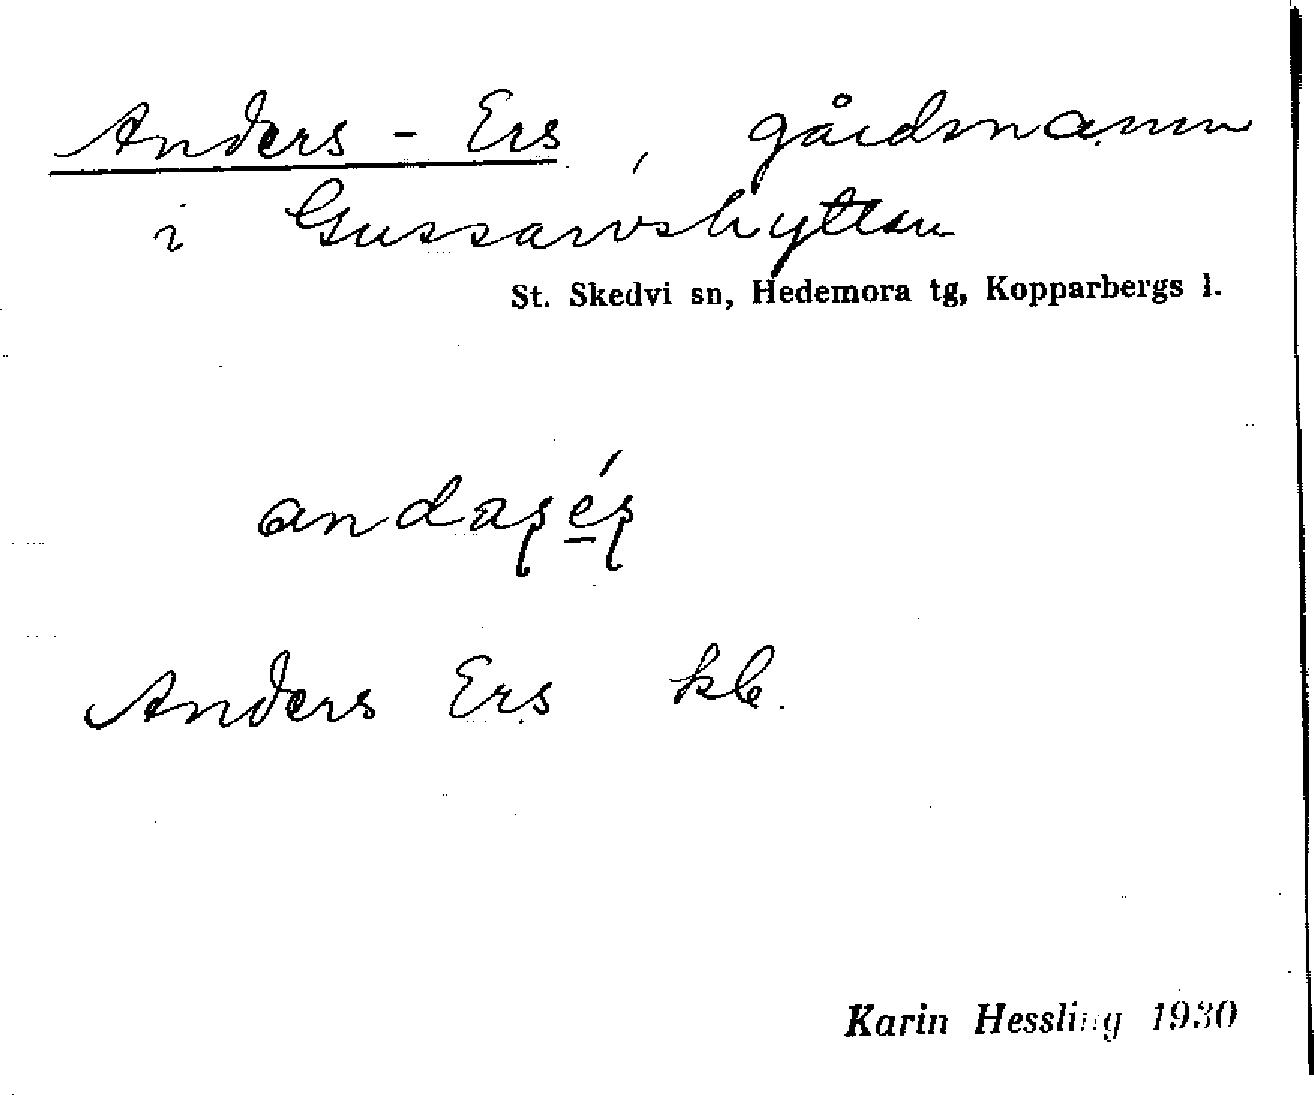 Anders-Ers, gårdsnamn
i Gussarvshyttan
St. Skedvi sn, Hedemora tg, Kopparbergs l.
andaʂéʂ
Anders Ers kb.
Karin Hessling 1930